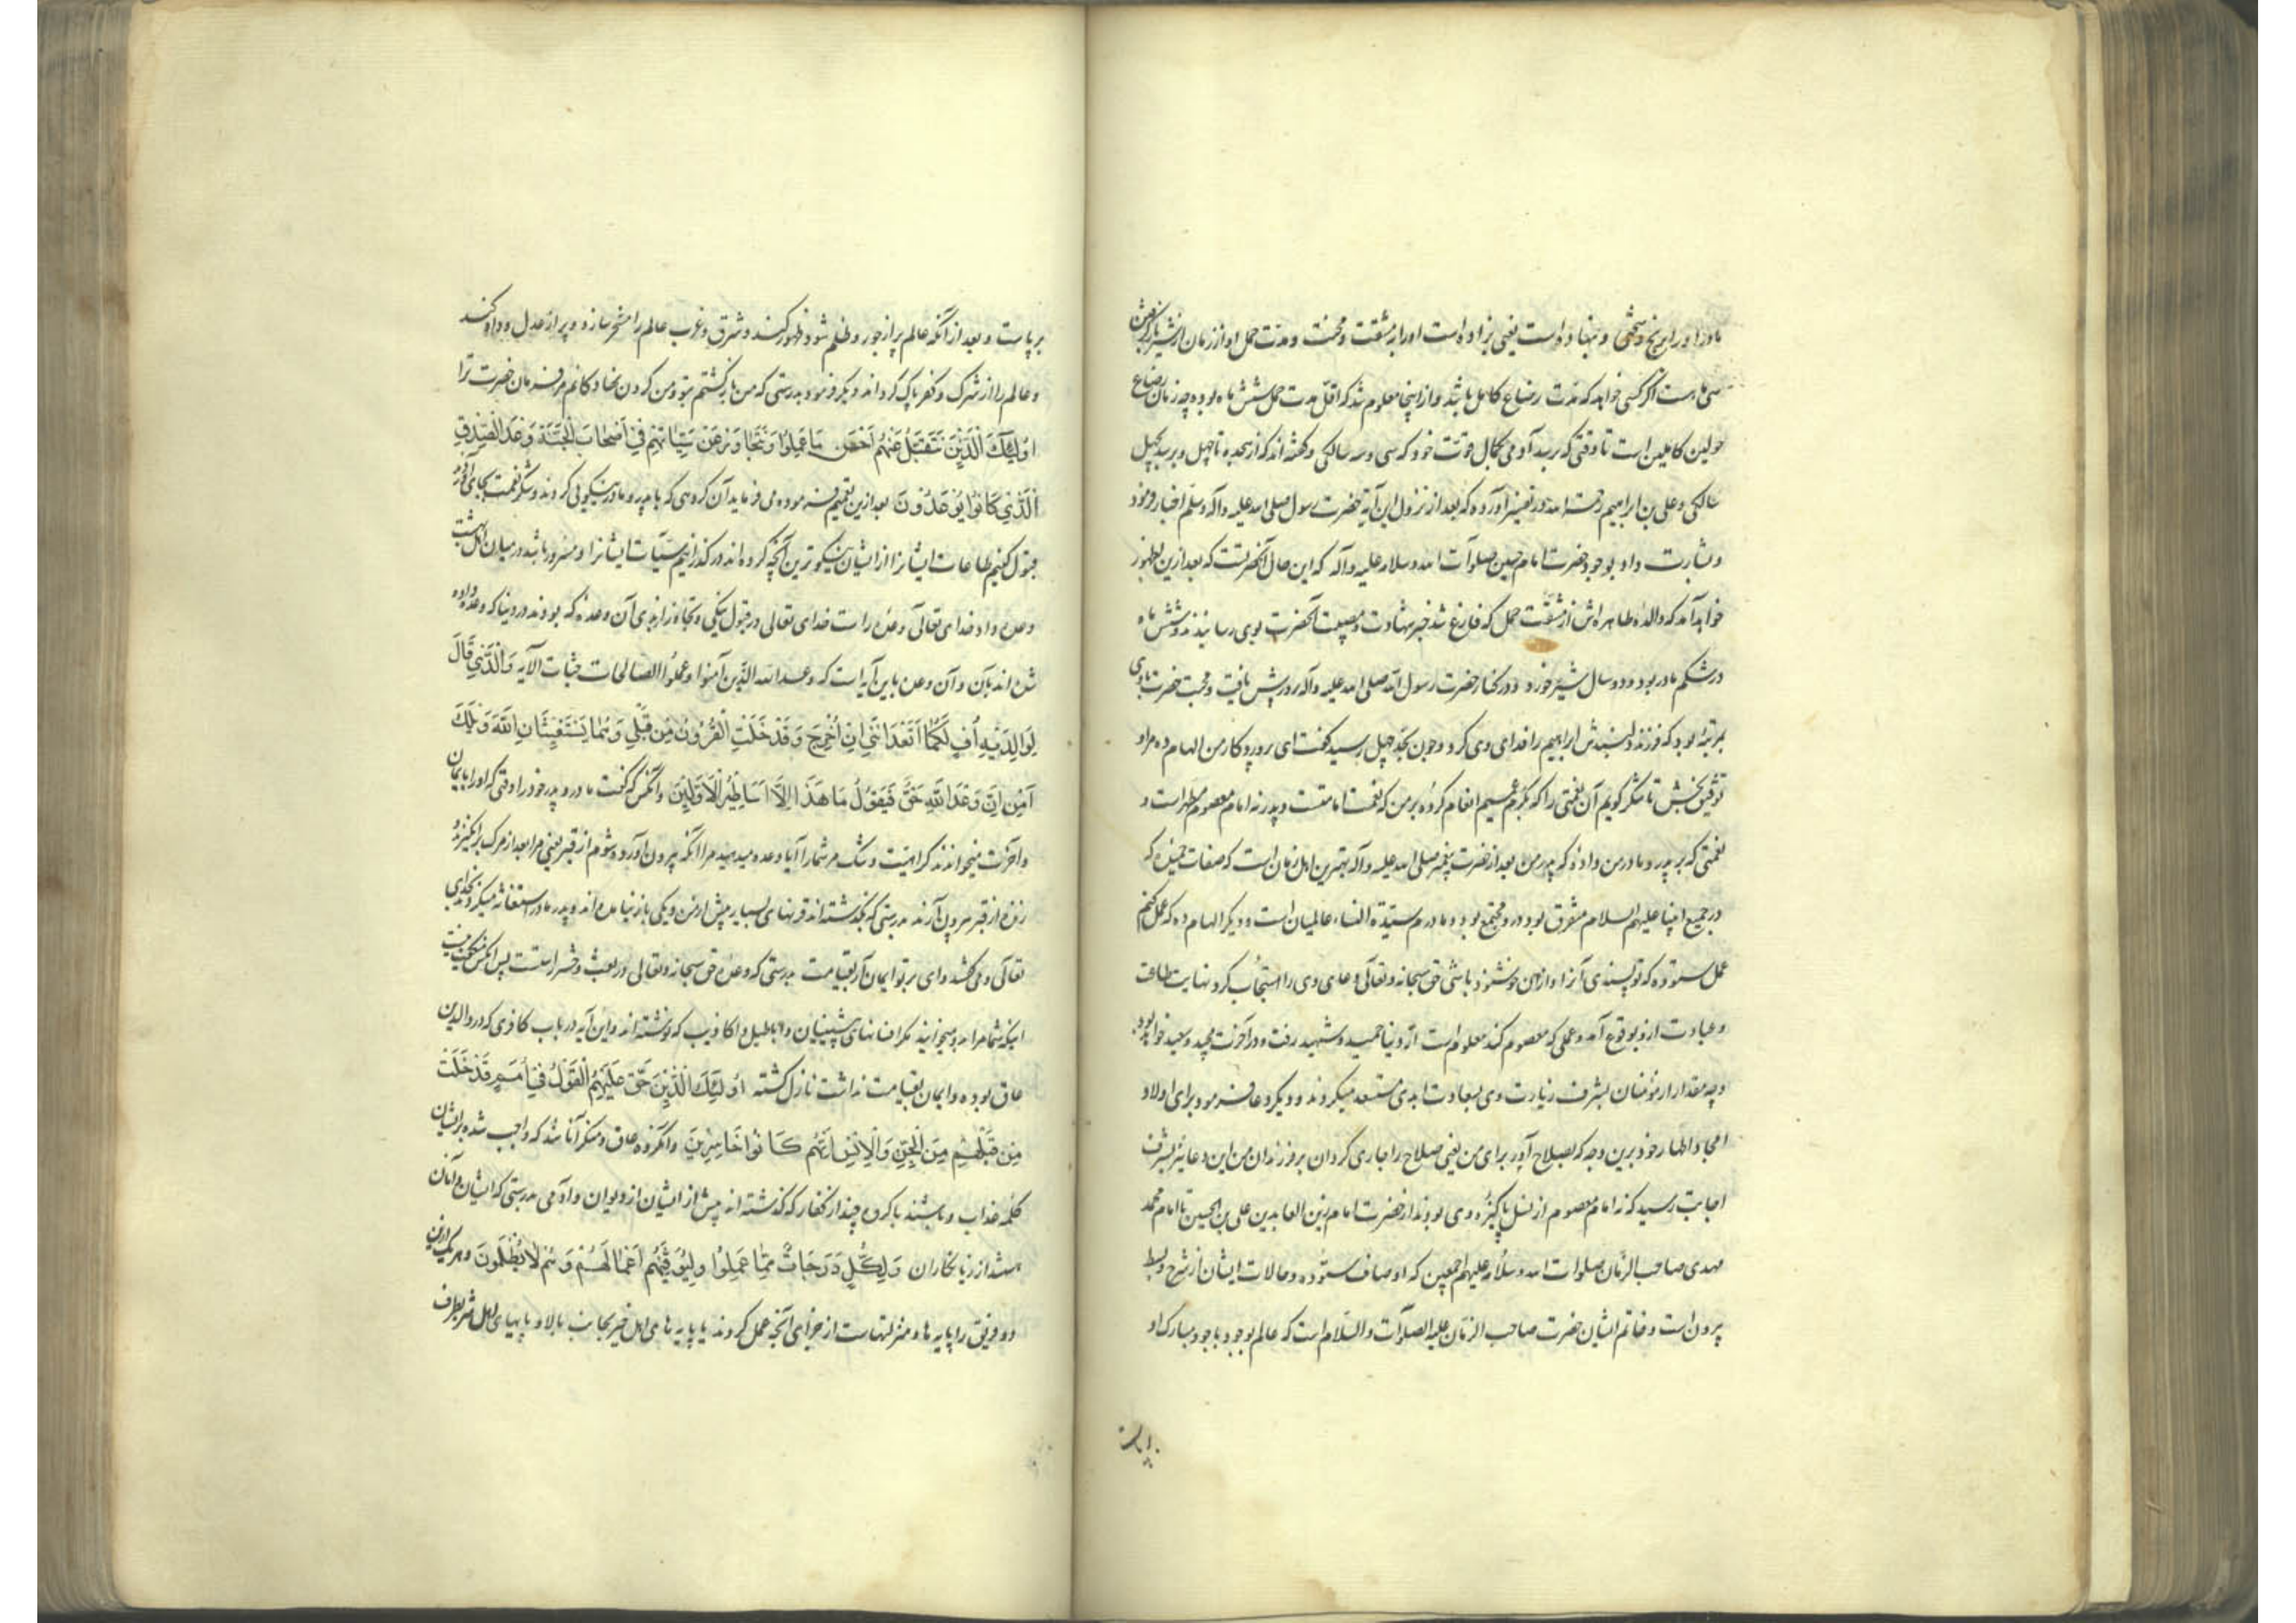 مادر او را برنج و سختی و بنهاد او است یعنی بزاده است او را بمشقت و محنت و مدت حمل او از زمان شیر باز گرفتن
سی ماه است اگر کسی خواهد که مدت رضاع کامل باشد و از اینجا معلوم شد که اقل مدت حمل شش ماه بوده چه زمان رضاع
حولین کاملین است تا وقتی که رسد آدمی بکمال قوت خود که سی و سه سالگی و گفته اند که از هجده تا چهل و برسد بچهل
سالگی و علی بن ابراهیم رحمة الله در تفسیر آورده که بعد از نزول این آیه حضرت رسول صلی الله علیه وآله وسلم اخبار فرمود
و بشارت داد بوجود حضرت امام حسین صلوات الله وسلامه علیه وآله که این حال آنحضرتست که بعد ازین بظهور
خواهد آمد که والدهٔ طاهره اش از مشقت حمل که فارغ شد خبر شهادت و مصیبت آنحضرت بوی رسانیدند و شش ماه
در شکم مادر بود و دو سال شیر خورد و در کنار حضرت رسول الله صلی الله علیه وآله پرورش یافت و محبت حضرت با وی
بمرتبهٔ بود که فرزند دلبندش ابراهیم را فدای وی کرد و چون بحد چهل رسید گفت ای پروردگار من الهام ده مرا و
توفیق بخش تا شکر گویم آن نعمتی را که بکرم عمیم انعام کردهٔ بر من که نعمت امامتست و پدر نه امام معصوم مطهر است و
نعمتی که بر پدر و مادر من دادهٔ که پدر من بعد از حضرت پیغمبر صلی الله علیه وآله بهترین اهل زمان است که صفات حمیده که
در جمیع انبیا علیهم السلام متفرق بود درو مجتمع بود و مادرم سیدة النساء عالمیان است و دیگر الهام ده که عمل کنم
عمل ستوده که تو پسندی آنرا و از من خوشنود باشی حق سبحانه وتعالی دعای وی را استجاب کرد نهایت طاعت
و عبادت ازو بوقوع آمد و عملی که معصوم کند معلوم است از دنیا حمید و شهید رفت و در آخرت مجید و سعید خواهد بود
و چه مقدار از مؤمنان بشرف زیارت وی بسعادت ابدی مستسعد میگردند و دیگر دعا فرمود برای اولاد
امجاد اطهار خود برین وجه که بصلاح آور برای من یعنی صلاح را جاری گردان بر فرزندان من این دعا نیز بشرف
اجابت رسید که نه امام معصوم از نسل پاکیزه وی بودند از حضرت امام زین العابدین علی بن الحسین تا امام محمد
مهدی صاحب الزمان صلوات الله وسلامه علیهم اجمعین که اوصاف ستوده و حالات ایشان از شرح و بسط
بیرون است و خاتم ایشان حضرت صاحب الزمان علیه الصلوات والسلام است که عالم بوجود باجود مبارک او
برپاست
برپاست و بعد از آنکه عالم پر از جور و ظلم شود ظهور کند و شرق و غرب عالم را مسخر سازد و پر از عدل و داد کند
و عالم را از شرک و کفر پاک گرداند و دیگر فرمود بدرستی که من باز گشتم بتو و من گردن نهادگانم مر فرمان حضرت ترا
اُولٰئِكَ الَّذِينَ نَتَقَبَّلُ عَنْهُمْ اَحْسَنَ مَا عَمِلُوا وَنَتَجَاوَزُ عَنْ سَيِّئَاتِهِمْ فِي اَصْحَابِ الْجَنَّةِ وَعْدَ الصِّدْقِ
الَّذِي كَانُوا يُوعَدُونَ بعد ازین تعمیم فرموده می فرماید آن گروهی که با پدر و مادر نیکویی کردند و شکر نعمت بجای آورد
قبول کنیم طاعات ایشانرا از ایشان نیکوترین آنچه کرده اند و در گذرانیم سیئات ایشانرا و مسرور باشند در میان اهل بهشت
وعده داد خدای تعالی وعدهٔ راست خدای تعالی در قبول نیکی و تجاوز از بدی آن وعده که بودند در دنیا که وعده داده
شده اند بآن و آن وعده باین آیه است که وعد الله الذین آمنوا وعملوا الصالحات جنات الآیه وَالَّذِي قَالَ
لِوَالِدَيْهِ اُفٍّ لَكُمَا اَتَعِدَانِنِي اَنْ اُخْرَجَ وَقَدْ خَلَتِ الْقُرُونُ مِنْ قَبْلِي وَهُمَا يَسْتَغِيثَانِ اللّٰهَ وَيْلَكَ
آمِنْ اِنَّ وَعْدَ اللّٰهِ حَقٌّ فَيَقُولُ مَا هٰذَا اِلَّا اَسَاطِيرُ الْاَوَّلِينَ و آنکس که گفت مادر و پدر خود را وقتی که او را بایمان
و آخرت میخواندند کراهیت و ننگ مر شما را آیا وعده میدهید مرا آنکه بیرون آورده شوم از قبر یعنی مرا بعد از مرگ برانگیزند و
زنده از قبر بیرون آرند بدرستی که بگذشته اند قرنهای بسیار پیش از من و یکی باز نیامده اند و پدر و مادر استغاثه میکردند بخدای
تعالی و می گفتند وای بر تو ایمان آر بقیامت بدرستی که وعده حق سبحانه وتعالی در بعث و حشر راست است پس آنکس میگفت نیست
اینکه شما مرا بدو میخوانید مگر افسانهای پیشینیان و اباطیل و اکاذیب که نوشته اند و این آیه در باب کافری که در والدین
عاق بوده و ایمان بقیامت نداشت نازل گشته اُولٰئِكَ الَّذِينَ حَقَّ عَلَيْهِمُ الْقَوْلُ فِي اُمَمٍ قَدْ خَلَتْ
مِنْ قَبْلِهِمْ مِنَ الْجِنِّ وَالْاِنْسِ اِنَّهُمْ كَانُوا خَاسِرِينَ و آنگروه عاق و منکر آنانند که واجب شده بر ایشان
کلمهٔ عذاب و باشند با گروه چند از کفار که گذشته اند پیش از ایشان از دیوان و آدمی بدرستی که ایشان و آنان
هستند از زیانکاران وَلِكُلٍّ دَرَجَاتٌ مِمَّا عَمِلُوا وَلِيُوَفِّيَهُمْ اَعْمَالَهُمْ وَهُمْ لَا يُظْلَمُونَ و هر یک ازین
دو فریق را پایه ها و منزلتهاست از جزای آنچه عمل کردند یا پایه های اهل خیر بجانب بالا و پایهای اهل شر بطرف